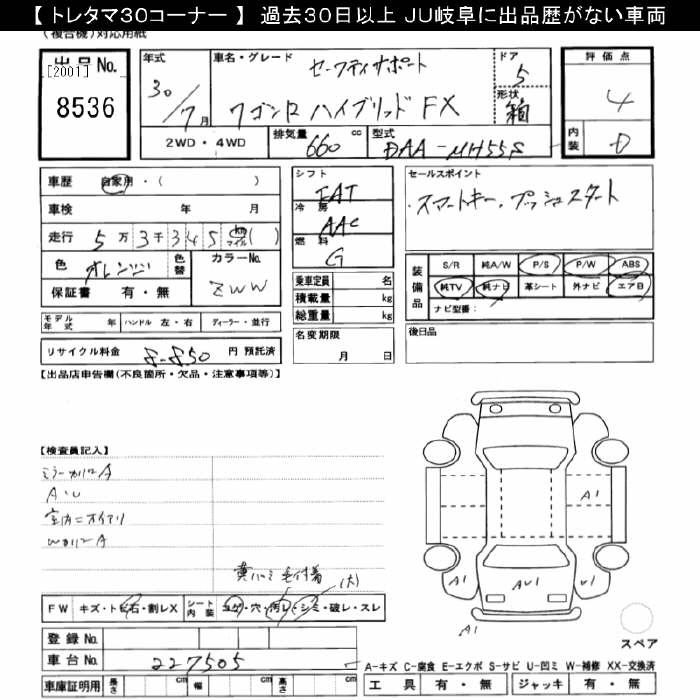 【 トレタマ３０コーナー 】 過去３０日以上 ＪＵ岐阜に出品歴がない車両
(複合機)対応用紙
出品No.
[2001]
8536
年式
30/7月
車名・グレード
セーフティサポート
ワゴンR ハイブリッド FX
ドア
5
形状
箱
評価点
4
内装
D
2WD・4WD
排気量
660 cc
型式
DAA-MH55S
車歴 自家用・( )
車検 年 月
走行 5万3千345 km マイル ( )
色 オレンジ 色替
カラーNo.
ZWW
保証書 有・無
モデル年式 年 ハンドル 左・右 ディーラー・並行
リサイクル料金 8850 円 預託済
シフト
FAT
冷房
AAC
燃料
G
乗車定員 名
積載量 kg
総重量 kg
名変期限
月 日
セールスポイント
・スマートキー・プッシュスタート
装備品
S/R 純A/W P/S P/W ABS
純TV 純ナビ 革シート 外ナビ エアB
ナビ型番：
後日品
【出品店申告欄(不良箇所・欠品・注意事項等)】
【検査員記入】
A・U
室内ニオイアリ
FW キズ・トビ石・割レX シート内装 コゲ・穴・汚レ・シミ・破レ・スレ
登録No.
車台No. 227505
車庫証明用 長さ cm 幅 cm 高さ cm
A1
A1
AU1
U1
A1
スペア
A-キズ C-腐食 E-エクボ S-サビ U-凹ミ W-補修 XX-交換済
工具 有・無 ジャッキ 有・無